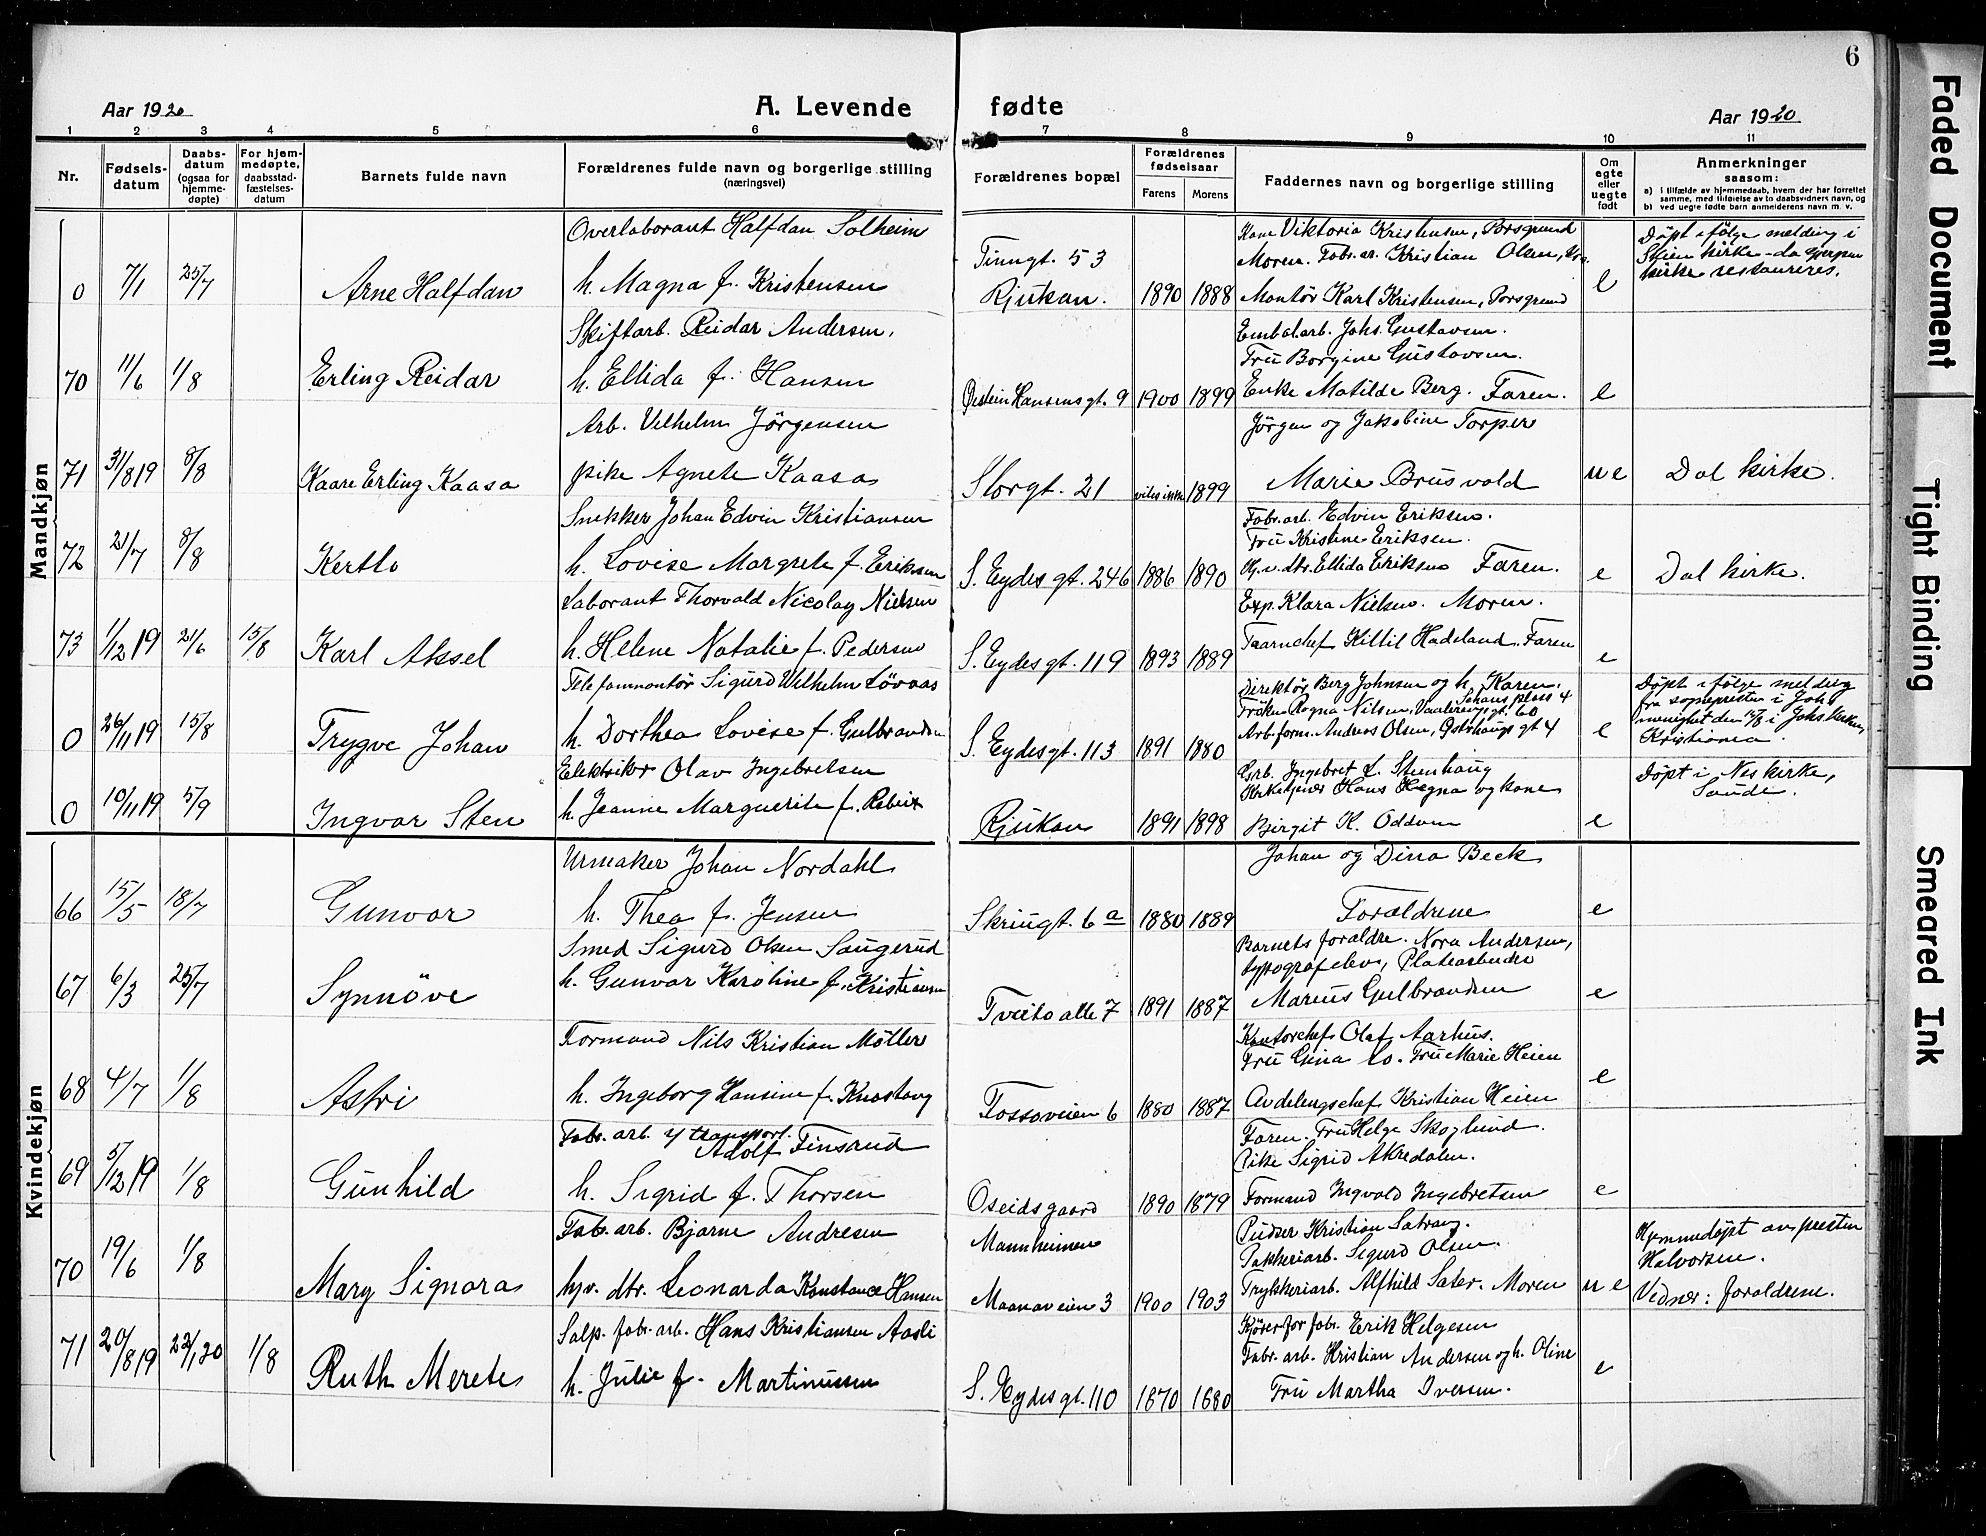 6
Aar 1920
A. Levende
fødte
Aar 1920
1 2 3 4 5 6 7 8 9 10 11
Nr.
Fødsels-
datum
Daabs-
datum
(ogsaa for
hjemme-
døpte)
For hjem-
medøpte,
daabsstad-
fæstelses-
datum
Barnets fulde navn
Forældrenes fulde navn og borgerlige stilling
(næringsvei)
Forældrenes bopæl
Forældrenes
fødselsaar
Farens
Morens
Faddernes navn og borgerlige stilling
Om
egte
eller
uegte
født
Anmerkninger
saasom:
a) i tilfælde av hjemmedaab, hvem der har forrettet
samme, med tilføielse av to daabsvidners navn, og
b) ved uegte fødte barn anmelderens navn m. v.
Mandkjøn
0 7/1 25/7 Arne Halfdan
Overlaborant Halfdan Solheim
h. Magna f. Kristensen
Tinngt. 53
Rjukan.
1890 1888
Kone Viktoria Kristensen, Porsgrund
Moren. Fabr. ar. Kristian Olsen,
Montör Karl Kristensen, Porsgrund
e
Döpt ifölge melding i
Skien kirke da Gjerpen
kirke restaureres.
70 11/6 1/8 Erling Reidar
Skiftarb. Reidar Andersen,
h. Ellida f. Hansen
Øistein Hansens gt. 9
1900 1899
Embalarb. Johs. Gustavsen.
Fru Borgine Gustavsen.
Enke Matilde Berg. Faren.
e
71 31/8 19 8/8 Kaare Erling Kaasa
Arb. Vilhelm Jörgensen
pike Agnete Kaasa
Storgt. 21
vites ikke 1899
Jörgen og Jakobine Torper
Marie Brusvold
ue
Dal kirke.
72 21/7 8/8 Kertlo
Snekker Johan Edvin Kristiansen
h. Lovise Margrete f. Eriksen
S. Eydes gt. 246
1886 1890
Fabr. arb. Edvin Eriksen.
Fru Kristine Eriksen.
Gj.v. dtr. Ellida Eriksen Faren.
e
Dal kirke.
73 1/12 19 21/6 15/8 Karl Aksel
Laborant Thorvald Nicolay Nielsen
h. Helene Natalie f. Pedersen
S. Eydes gt. 119
1893 1889
Exp. Klara Nielsen. Moren.
Taarnchef Kittil Hadeland. Faren
e
0 26/11 19 15/8 Trygve Johan
Telefonmontör Sigurd Wilhelm Lövaas
h. Dorthea Lovise f. Gulbrandsen
S. Eydes gt. 113
1891 1880
Direktör Berg Johnsen og h. Karen.
Schous plass 4
Fröken Ragna Nilsen, Vaalerengs gt. 60
Arb. form. Anders Olsen, Østrhaugs gt 4
e
Döpt ifölge melding
fra sognepresten i Johs
menighet den 15/8 i Johs. kirken,
Kristiania.
0 10/11 19 5/9 Ingvar Sten
Elektriker Olav Ingebretsen
h. Jeanne Marguerite f. Rebeix
Rjukan
1891 1898
Grb. Ingebret L. Steenhaug
Kirketjener Hans Hegna og kone
Birgit K. Oddven
e
Döpt i Nes kirke,
Saude.
Kvindekjøn
66 15/5 18/7 Gunvor
Urmaker Johan Nordahl
h. Thea f. Jensen
Skriugt. 6 a
1880 1889
Johan og Dina Beck
Foraldrene
e
67 6/3 25/7 Synnöve
Smed Sigurd Olsen Saugerud
h. Gunvor Karoline f. Kristiansen
Tveito alle 7
1891 1887
Barnets foraldre. Nora Andersen,
typografelev, Platearbeider
Marius Gulbrandsen
e
68 4/7 1/8 Astri
Formand Nils Kristian Möller
h. Ingeborg Hansine f. Knastorg
Fossoveien 6
1880 1887
Kontorchef Olaf Aarhus.
Fru Gina Lo. Fru Marie Heien
Avdelingschef Kristian Heien
e
69 5/12 19 1/8 Gunhild
Fabr. arb. v/ transport.
Adolf Finsrud
h. Sigrid f. Thorsen
Oseidsgaard
1890 1879
Faren. Fru Helga Skoglund.
Pike Sigrid Akredalen.
Formand Ingvald Ingebretsen
e
70 19/6 1/8 Mary Signora
Fabr. arb. Bjarne Andresen
hjv. dtr. Leonarda Konstance Hansen
Mannheimen
Maanaveien 3
1900 1903
Pudser Kristian Satrang.
Pakkeriarb. Sigurd Olsen.
Trykkeriarb. Alfhild Sater. Moren
ue
Hjemmedöpt av presten
Halvorsen.
Vidner: foraldrene.
71 20/8 19 22/1 20 1/8 Ruth Merete
Salp. fabr. arb. Hans Kristiansen Aasli
h. Julie f. Martinussen
S. Eydes gt. 110
1870 1880
Kjörer for fabr. Erik Helgesen
Fabr. arb. Kristian Andersen og h. Oline
Fru Martha Iversen.
e
Faded Document
Tight Binding
Smeared Ink